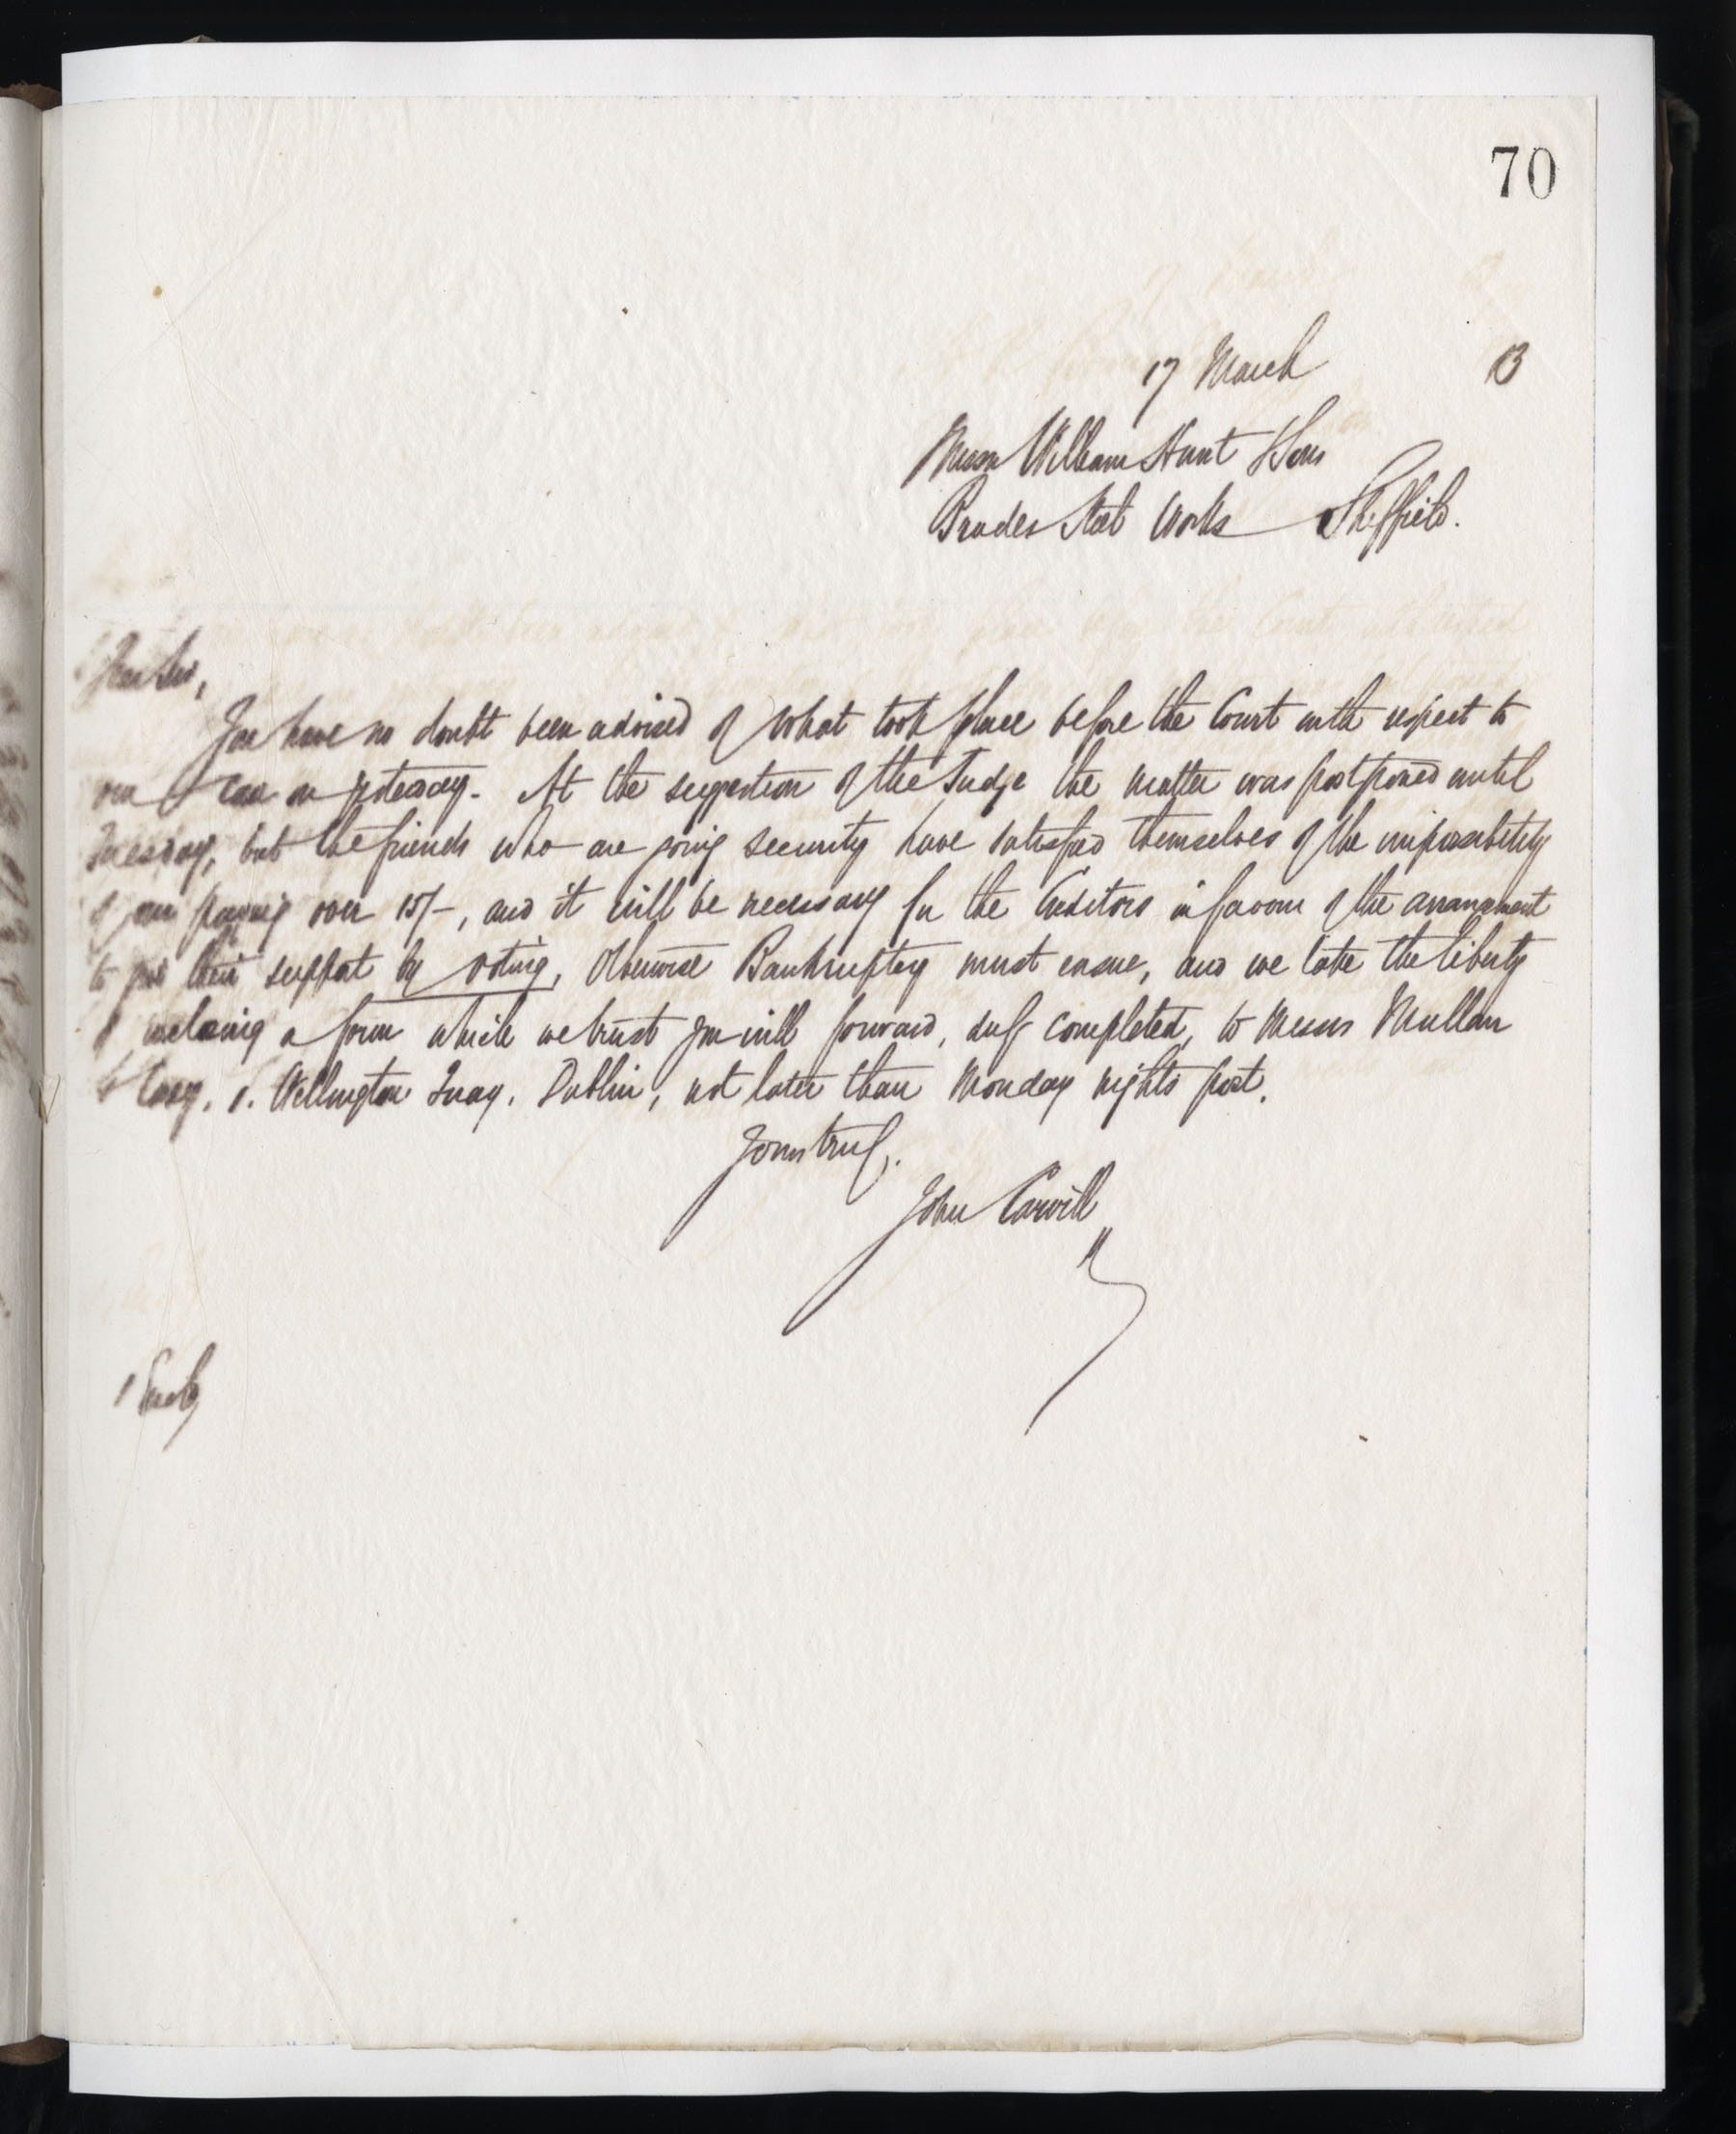 70
17 March 83
Messrs William Hunt & Sons
Brades Steel Works Sheffield.
Dear Sirs,
You have no doubt been advised of what took place before the Court with respect to
our case on yesterday. At the suggestion of the Judge the matter was postponed until
Tuesday, but the friends who are going security have satisfied themselves of the impossibility
of our paying over 15/-, and it will be necessary for the Creditors in favour of the arrangement
to give their support by voting, otherwise Bankruptcy must ensue, and we take the liberty
of enclosing a form which we trust you will forward, duly completed, to Messrs Mullan
& Casey, 1. Wellington Quay, Dublin, not later than Monday nights post.
Yours truly,
John Carvill
1 Enclo